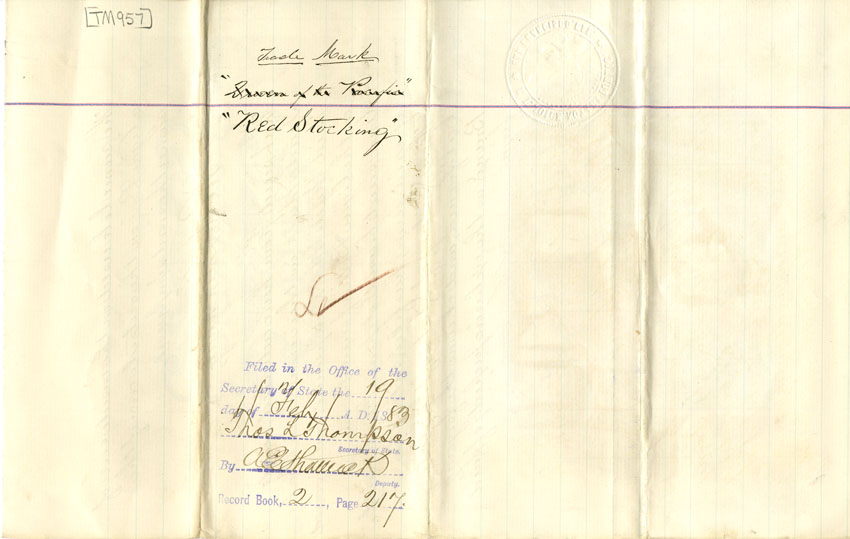 [TM957]
Trade Mark
"Queen of the Pacific"
"Red Stocking"
Filed in the Office of the
Secretary of State the 19
day of Feby A. D. 1883
Thos L Thompson
Secretary of State.
By
Deputy.
Record Book, 2, Page 217.